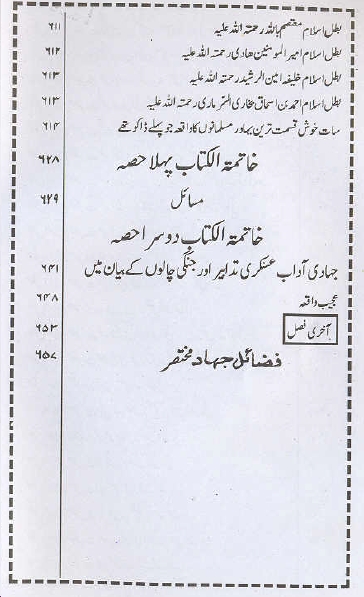 بطل اسلام معتصم باللہ رحمتہ اللہ علیہ ۶۱۱
بطل اسلام امیر المومنین ھادی رحمتہ اللہ علیہ ۶۱۲
بطل اسلام خلیفہ امین الرشید رحمتہ اللہ علیہ ۶۱۳
بطل اسلام احمد بن اسحاق بخاری السرماری رحمتہ اللہ علیہ ۶۱۳
سات خوش قسمت ترین بہادر مسلمانوں کا واقعہ جو پہلے ڈاکو تھے ۶۱۴
خاتمۃ الکتاب پہلا حصہ ۶۲۸
مسائل ۶۲۹
خاتمۃ الکتاب دوسرا حصہ
جہادی آداب عسکری تدابیر اور جنگی چالوں کے بیان میں ۶۴۱
عجیب واقعہ ۶۴۸
آخری فصل ۶۵۲
فضائل جہاد مختصر ۶۵۷